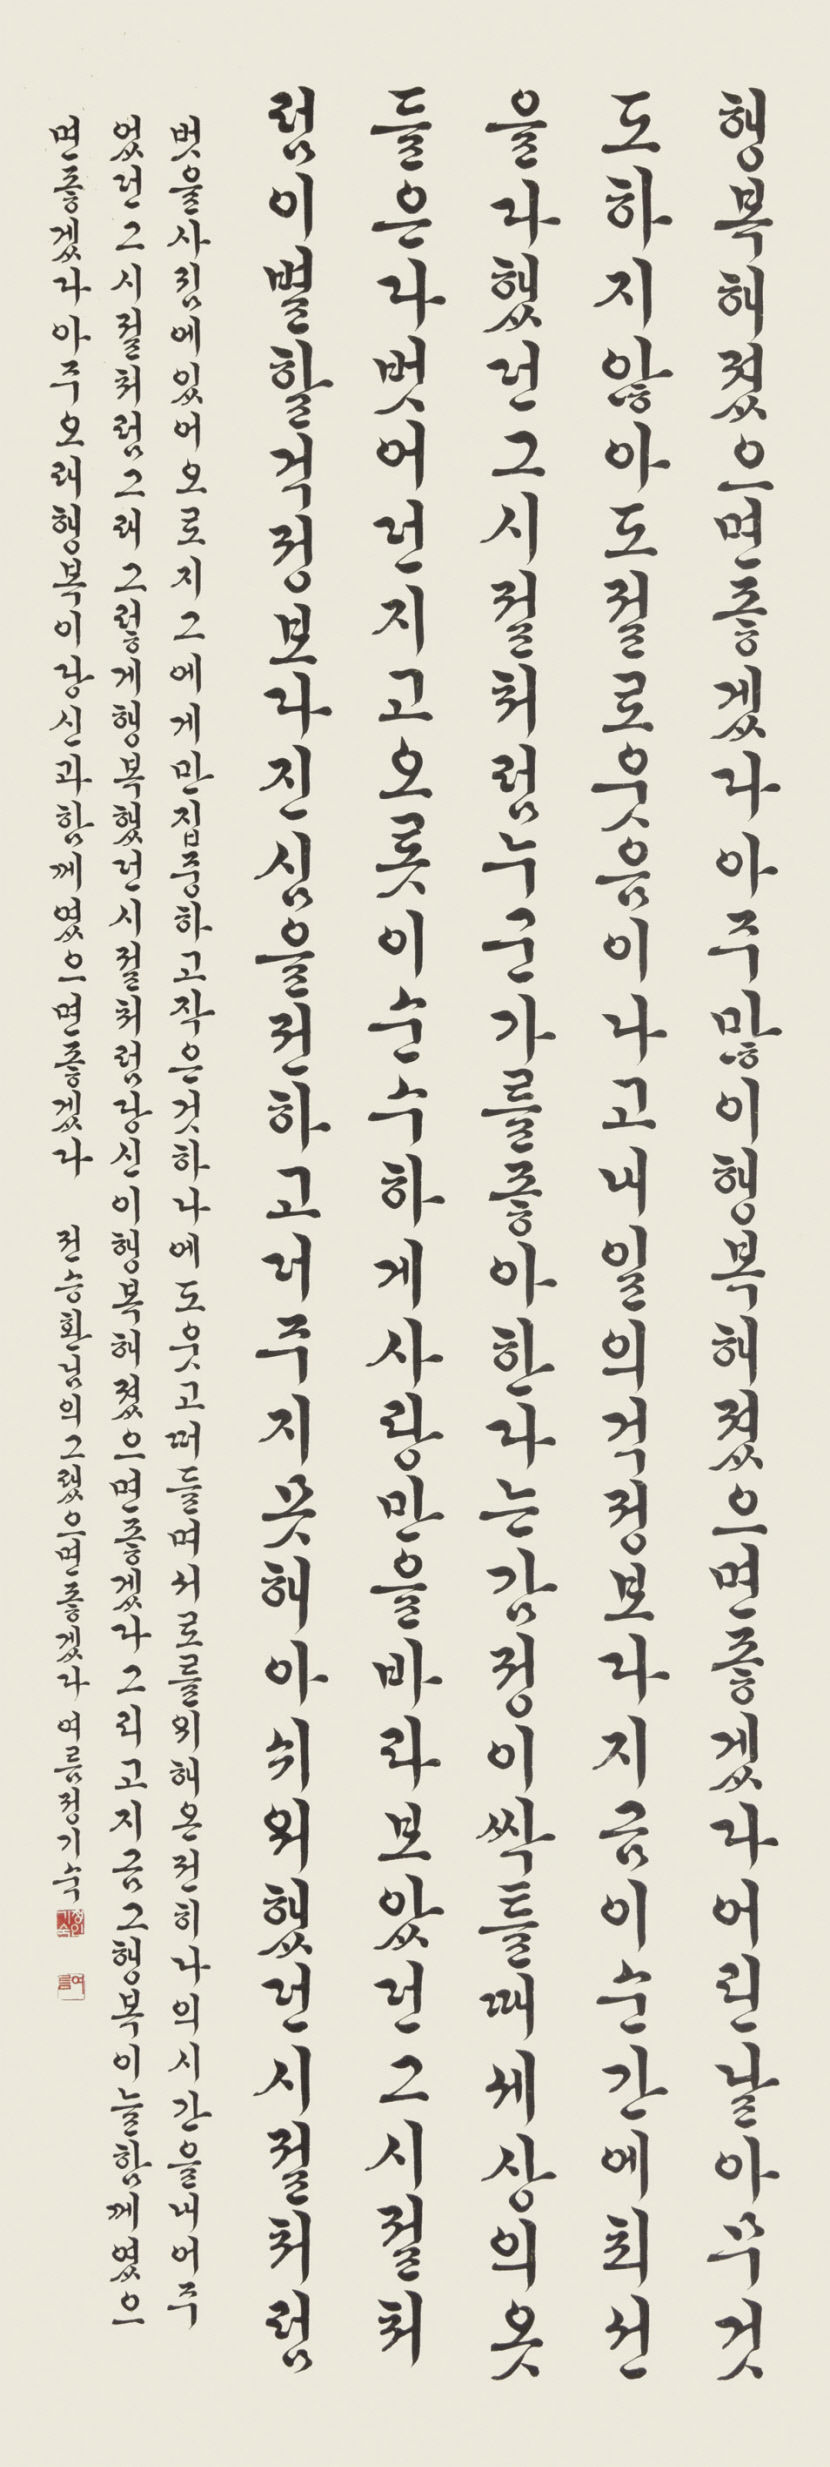 행복해졌으면좋겠다아주많이행복해졌으면좋겠다어린날아무것
도하지않아도절로웃음이나고내일의걱정보다지금이순간에최선
을다했던그시절처럼누군가를좋아한다는감정이싹틀때세상의옷
들은다벗어던지고오롯이순수하게사랑만을바라보았던그시절처
럼이별할걱정보다진심을전하고더주지못해아쉬워했던시절처럼
벗을사귐에있어오로지그에게만집중하고작은것하나에도웃고떠들며서로를위해온전히나의시간을내어주
었던그시절처럼그래그렇게행복했던시절처럼당신이행복해졌으면좋겠다그리고지금그행복이늘함께였으
면좋겠다아주오래행복이당신과함께였으면좋겠다 전승환님의그랬으면좋겠다 여름정기숙
여름